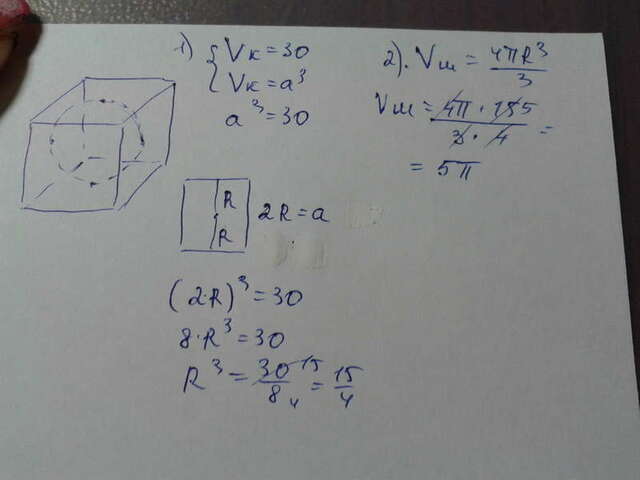 1) { Vк = 30
Vк = a³
a³ = 30
R
R
2R = a
(2·R)³ = 30
8·R³ = 30
R³ = 30 15 / 8 4 = 15/4
2). Vш = 4πR³/3
Vш = 4π · 15 5 / 3 · 4 =
= 5π